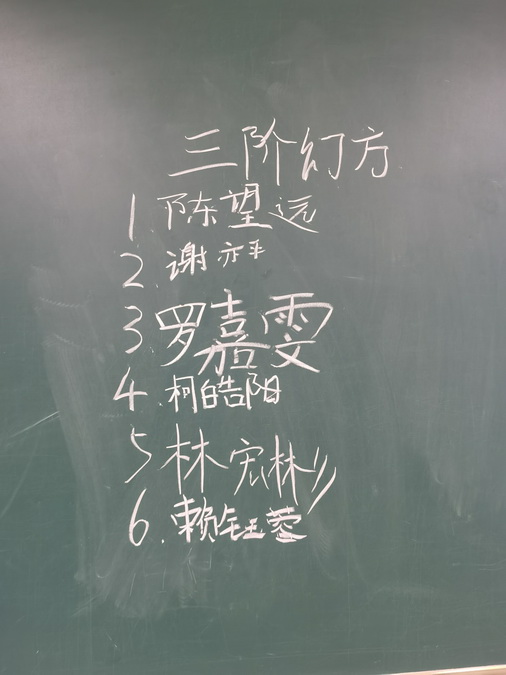 三阶幻方
1.陈望远
2.谢亦平
3.罗嘉雯
4.柯皓阳
5.林宏彬
6.赖钰蓉